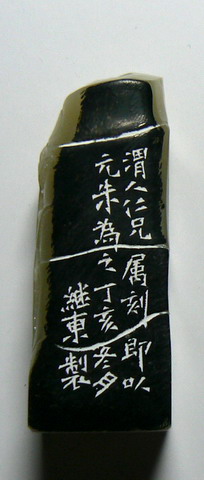 渭人仁兄属刻即以
元朱為之丁亥冬夕
継東製